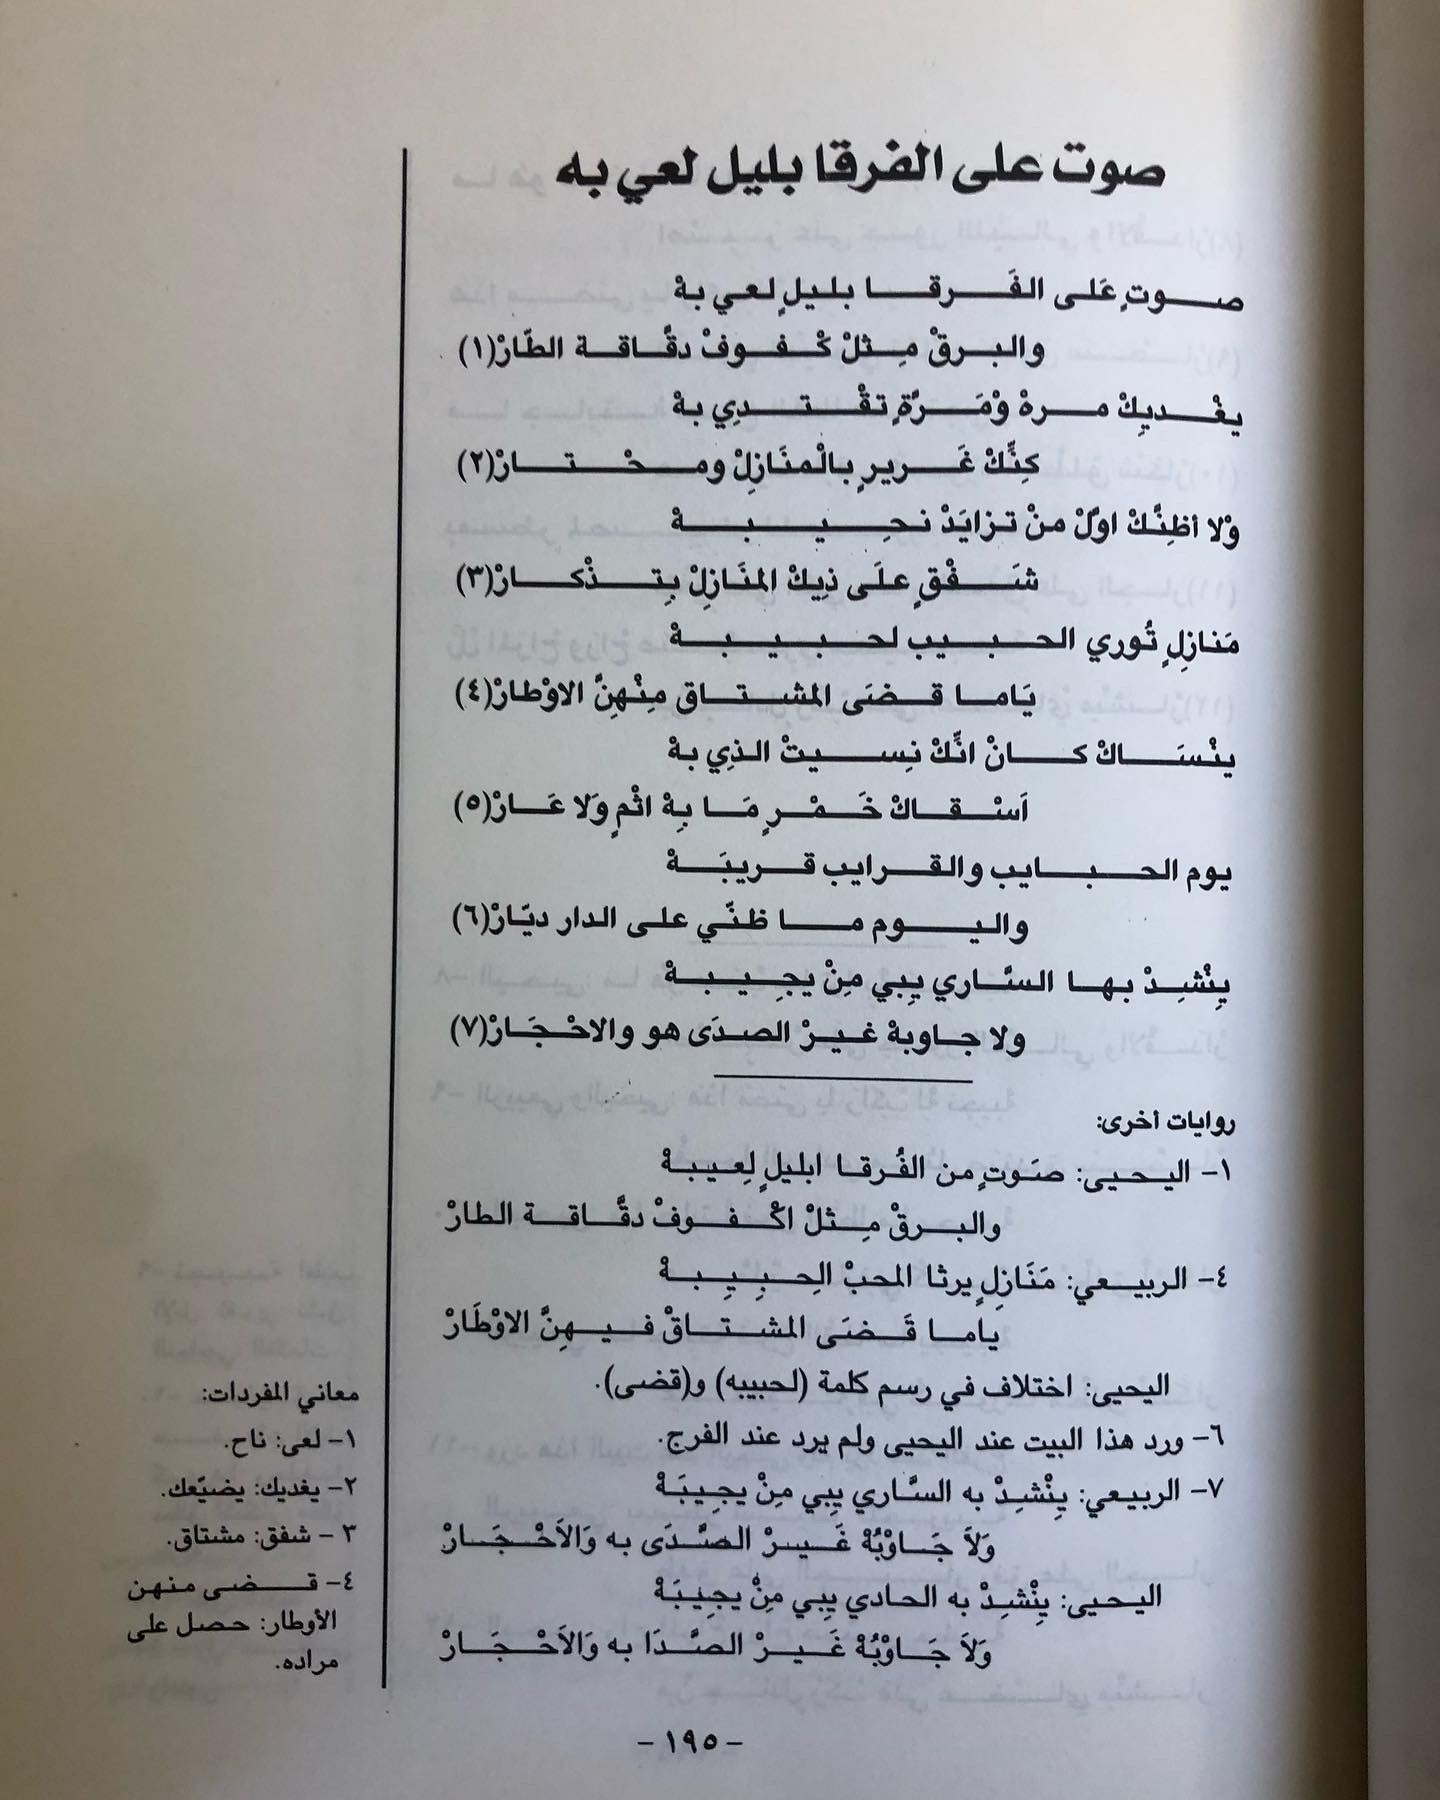 صوت على الفرقا بليل لعي به
صوتٍ عَلى الفَرقا بليلٍ لعي بهْ
والبرقْ مِثلْ كْفوفْ دقَّاقة الطّارْ(١)
يغْديكْ مرهْ وْمَرَّةٍ تقْتدِي بهْ
كِنِّكْ غَريرٍ بالْمنَازِلْ ومحْتارْ(٢)
وْلا أظِنَّكْ اولْ منْ تزايَدْ نحِيبهْ
شَفْقٍ علَى ذِيكْ المنَازِلْ بِتذْكارْ(٣)
مَنازِلٍ تُوري الحبيب لحبيبهْ
يَاما قضَى المشتاق مِنْهِنَّ الاوْطارْ(٤)
ينْسَاكْ كانْ انَّكْ نِسيتْ الذِي بهْ
اَسْقاكْ خَمْرٍ مَا بِهْ اثْمٍ وَلا عَارْ(٥)
يوم الحبايب والقرايب قريبَهْ
واليوم ما ظنّي على الدار ديّارْ(٦)
يِنْشِدْ بها السَّاري يِبي مِنْ يجِيبهْ
ولا جاوبهْ غيرْ الصدَى هو والاحْجَارْ(٧)
روايات أخرى:
١- اليحيى: صَوتٍ من الفُرقا ابليلٍ لِعيبهْ
والبرقْ مِثلْ اكْفوفْ دقَّاقة الطارْ
٤- الربيعي: مَنَازِلٍ يرثا المحبْ الِحبِيِبهْ
ياما قَضَى المشتاقْ فيهِنَّ الاوْطَارْ
اليحيى: اختلاف في رسم كلمة (لحبيبه) و(قضى).
٦- ورد هذا البيت عند اليحيى ولم يرد عند الفرج.
٧- الربيعي: يِنْشِدْ به السَّاري يِبي مِنْ يجِيبَهْ
وَلاَ جَاوْبُهْ غَيرْ الصَّدَى به وَالاَحْجَارْ
اليحيى: يِنْشِدْ به الحادي يِبي مِنْ يجِيبَهْ
وَلاَ جَاوْبُهْ غَيرْ الصَّدَا به وَالاَحْجَارْ
معاني المفردات:
١- لعى: ناح.
٢- يغديك: يضيّعك.
٣- شفق: مشتاق.
٤- قضى منهن
الأوطار: حصل على
مراده.
- ١٩٥ -